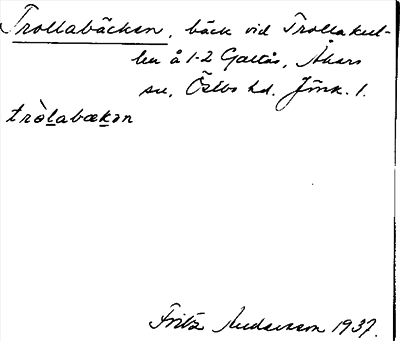 Trollabäcken, bäck vid Trollakul-
len å 1-2 Galtås, Åkers
sn, Östbo hd. Jönk. l.
tròl̲abæk̲ən
Fritz Andersson 1937.